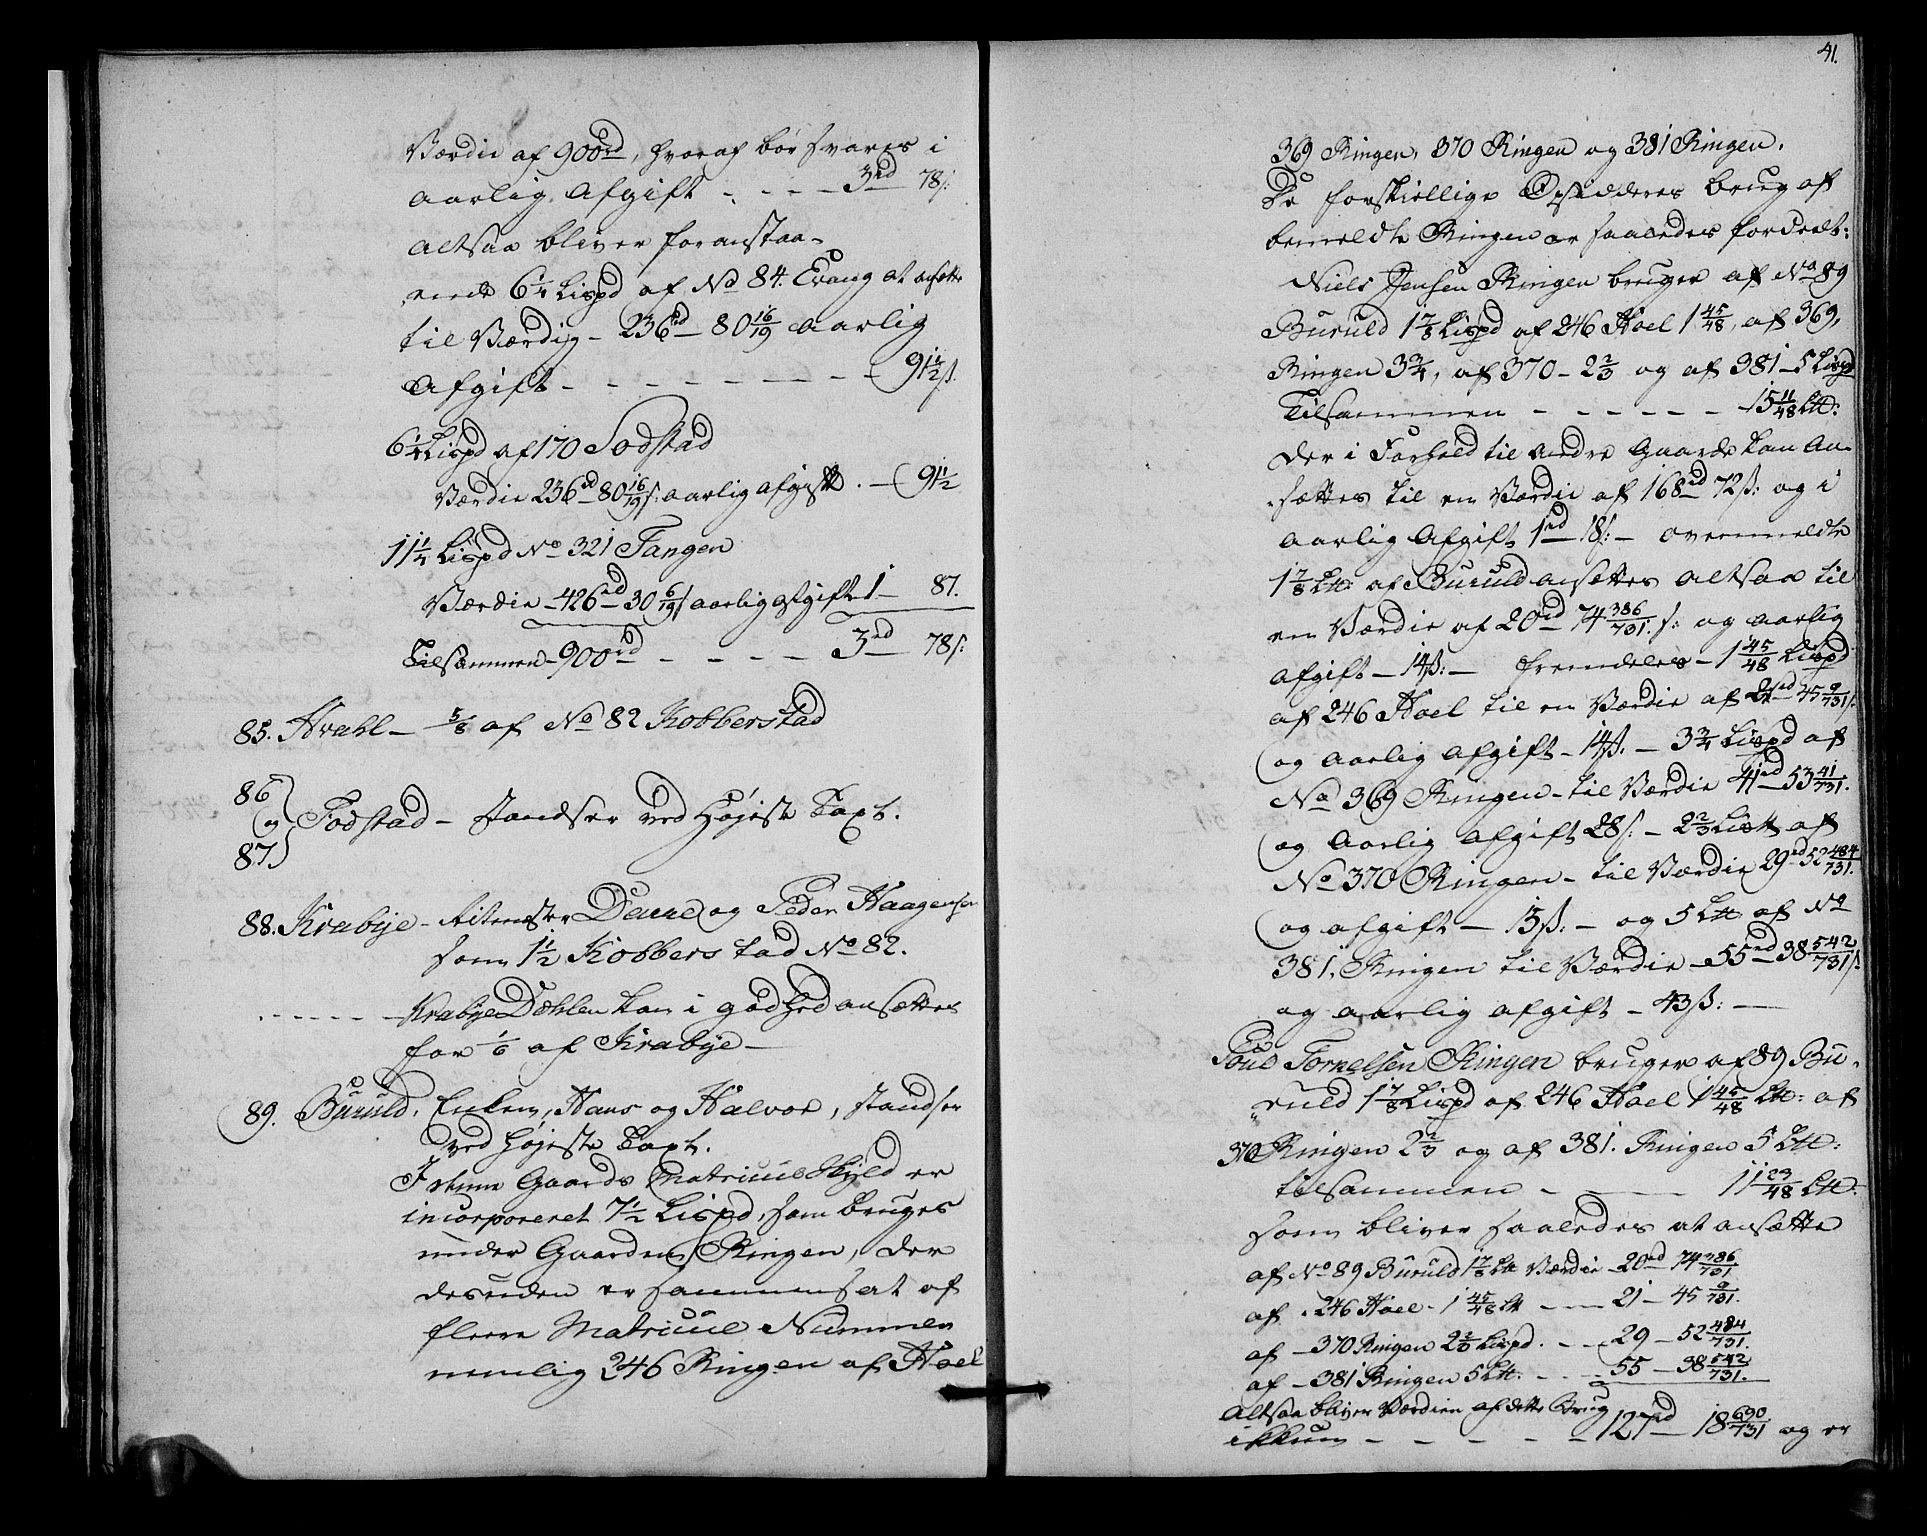 Værdie af 900rd, hvoraf bør svares i
aarlig Afgift - - - - 3rd 78/:
altsaa bliver foranstaa-
ende 6 1/4 Lispd af No 84. Evang at ansætte
til Værdie - 236rd - 80 16/19 aarlig
Afgift - - - - - - - - 91 1/2 ß.
6 1/4 Lispd af 170 Sodstad
Værdie 236rd 80 16/19 /: aarlig afgift . - 91 1/2
11 1/4 Lispd No 321 Tangen
Værdie - 426rd - 30 6/19 / aarlig afgift 1 - 87.
Tilsammen - 900rd - - - - 3rd 78/:
85. Hvahl - 5/8 af No 82 Kobberstad
86
og Todstad - standser ved højeste Taxt.
87
88. Krabye - Ritmester Deure og Peder Haagensen
som 1 1/2 Kobberstad No 82.
- - - - - - Krabye Dæhlen kan i godhed ansættes
for 1/6 af Krabye -
89. Buruld. Enken, Hans og Halvor, standser
ved højeste Taxt.
I denne Gaards Matricul Skyld er
incorporeret 7 1/2 Lispd, som bruges
under Gaarden Ringen, der
desuden er sammensat af
fleere Matricul Nummer
nemlig 246 Ringen af Hoel
41.
369 Ringen, 370 Ringen og 381 Ringen.
De forskiellige Opsidderes brug af
bemeldte Ringen er saaledes fordeelt:
Niels Jensen Ringen bruger af No 89
Buruld 1 7/8 Lispd af 246 Hoel 1 45/48, af 369,
Ringen 3 3/4, af 370 - 2 2/3 og af 381 - 5 Lispd
Tilsammen - - - - - - 15 11/48 L℔:
der i Forhold til andre Gaarde kan An-
sættes til en Værdie af 168rd 72ß: og i
aarlig Afgift 1rd 18/: - ovenmeldte
1 7/8 L℔: af Buruld ansættes altsaa til
en Værdie af 20rd 74 386/731 /: og aarlig
afgift - 14ß: - fremdeles - 1 45/48 Lispd
af 246 Hoel til en Værdie af 21rd 45 9/731 /:
og aarlig afgift - 14ß. - 3 3/4 Lispd af
No 369 Ringen - til Værdie 41rd - 53 41/731.
og Aarlig afgift 28/: - 2 2/3 Lis℔ af
No 370 Ringen - til Værdie 29rd 52 484/731.
og afgift - 13ß: - og 5 L℔ af No
381. Ringen til Værdie - 55rd - 38 542/731 /:
og aarlig afgift - 43ß: -
Poul Torkelsen Ringen bruger af 89 Bu-
ruld 1 7/8 Lispd af 246 Hoel 1 45/48 L℔: af
370 Ringen 2 2/3 og af 381. Ringen 5 L℔:
tilsammen - - - 11 23/48 L℔:
som bliver saaledes at ansætte
af No 89 Buruld 1 7/8 L℔ Værdie - 20rd - 74 386/731
af - 246 Hoel - 1 45/48 L℔ - - - 21 - 45 9/731.
af - 370 Ringen 2 2/3 Lispd. - - 29 - 52 484/731.
af - 381 Ringen 5 L℔: - - - 55 - 38 542/731.
Altsaa bliver Værdien af dette Brug
ikkun - - - - - 127rd - 18 690/731 og er